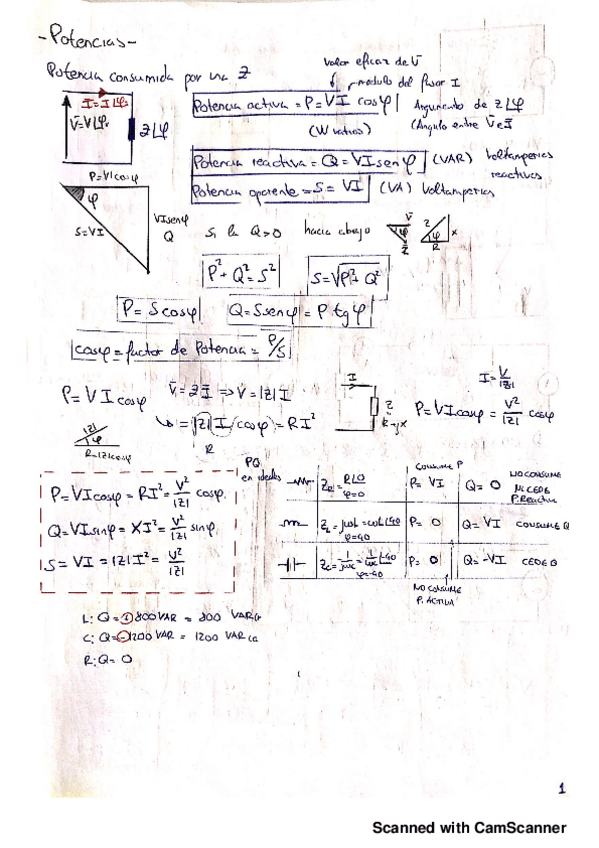 -Potencias-
Potencia consumida por una Z
valor eficaz de V̄
módulo del fasor I
Ī=I∠φᵢ
V̄=V∠φᵥ
Z∠φ
Potencia activa = P = VI cosφ
(W vatios)
Argumento de Z∠φ
(Ángulo entre V̄ e Ī
Potencia reactiva = Q = VI senφ (VAR) Voltamperios reactivos
Potencia aparente = S = VI (VA) Voltamperios
P=VIcosφ
φ
S=VI
VIsenφ
Q
Si la Q>0 hacia abajo
V̄
φ
Z
φ
R
X
P²+Q²=S²
S=√P²+Q²
P=Scosφ
Q=Ssenφ=P tgφ
cosφ=factor de Potencia=P/S
P=VIcosφ
V̄=ZĪ => V=|Z|I
=|Z|I I cosφ=RI²
R
|Z|
φ
R=|Z|cosφ
I
Z
R+jX
I=V/|Z|
P=VIcosφ=V²/|Z| cosφ
P=VIcosφ=RI²=V²/|Z| cosφ.
Q=VIsinφ=XI²=V²/|Z| sinφ.
S=VI=|Z|I²=V²/|Z|
PQ
en ideales
CONSUME P
Z_R=R∠0
φ=0
P=VI
Q=0
NO CONSUME
NI CEDE
P.Reactiva
Z_L=jωL=ωL∠90
φ=90
P=0
Q=VI CONSUME Q
Z_C=1/jωC=1/ωC∠-90
φ=-90
P=0
Q=-VI CEDE Q
NO CONSUME
P. ACTIVA
L: Q=+800 VAR = 800 VAR
C: Q=-1200 VAR = 1200 VAR
R: Q=0
1
Scanned with CamScanner